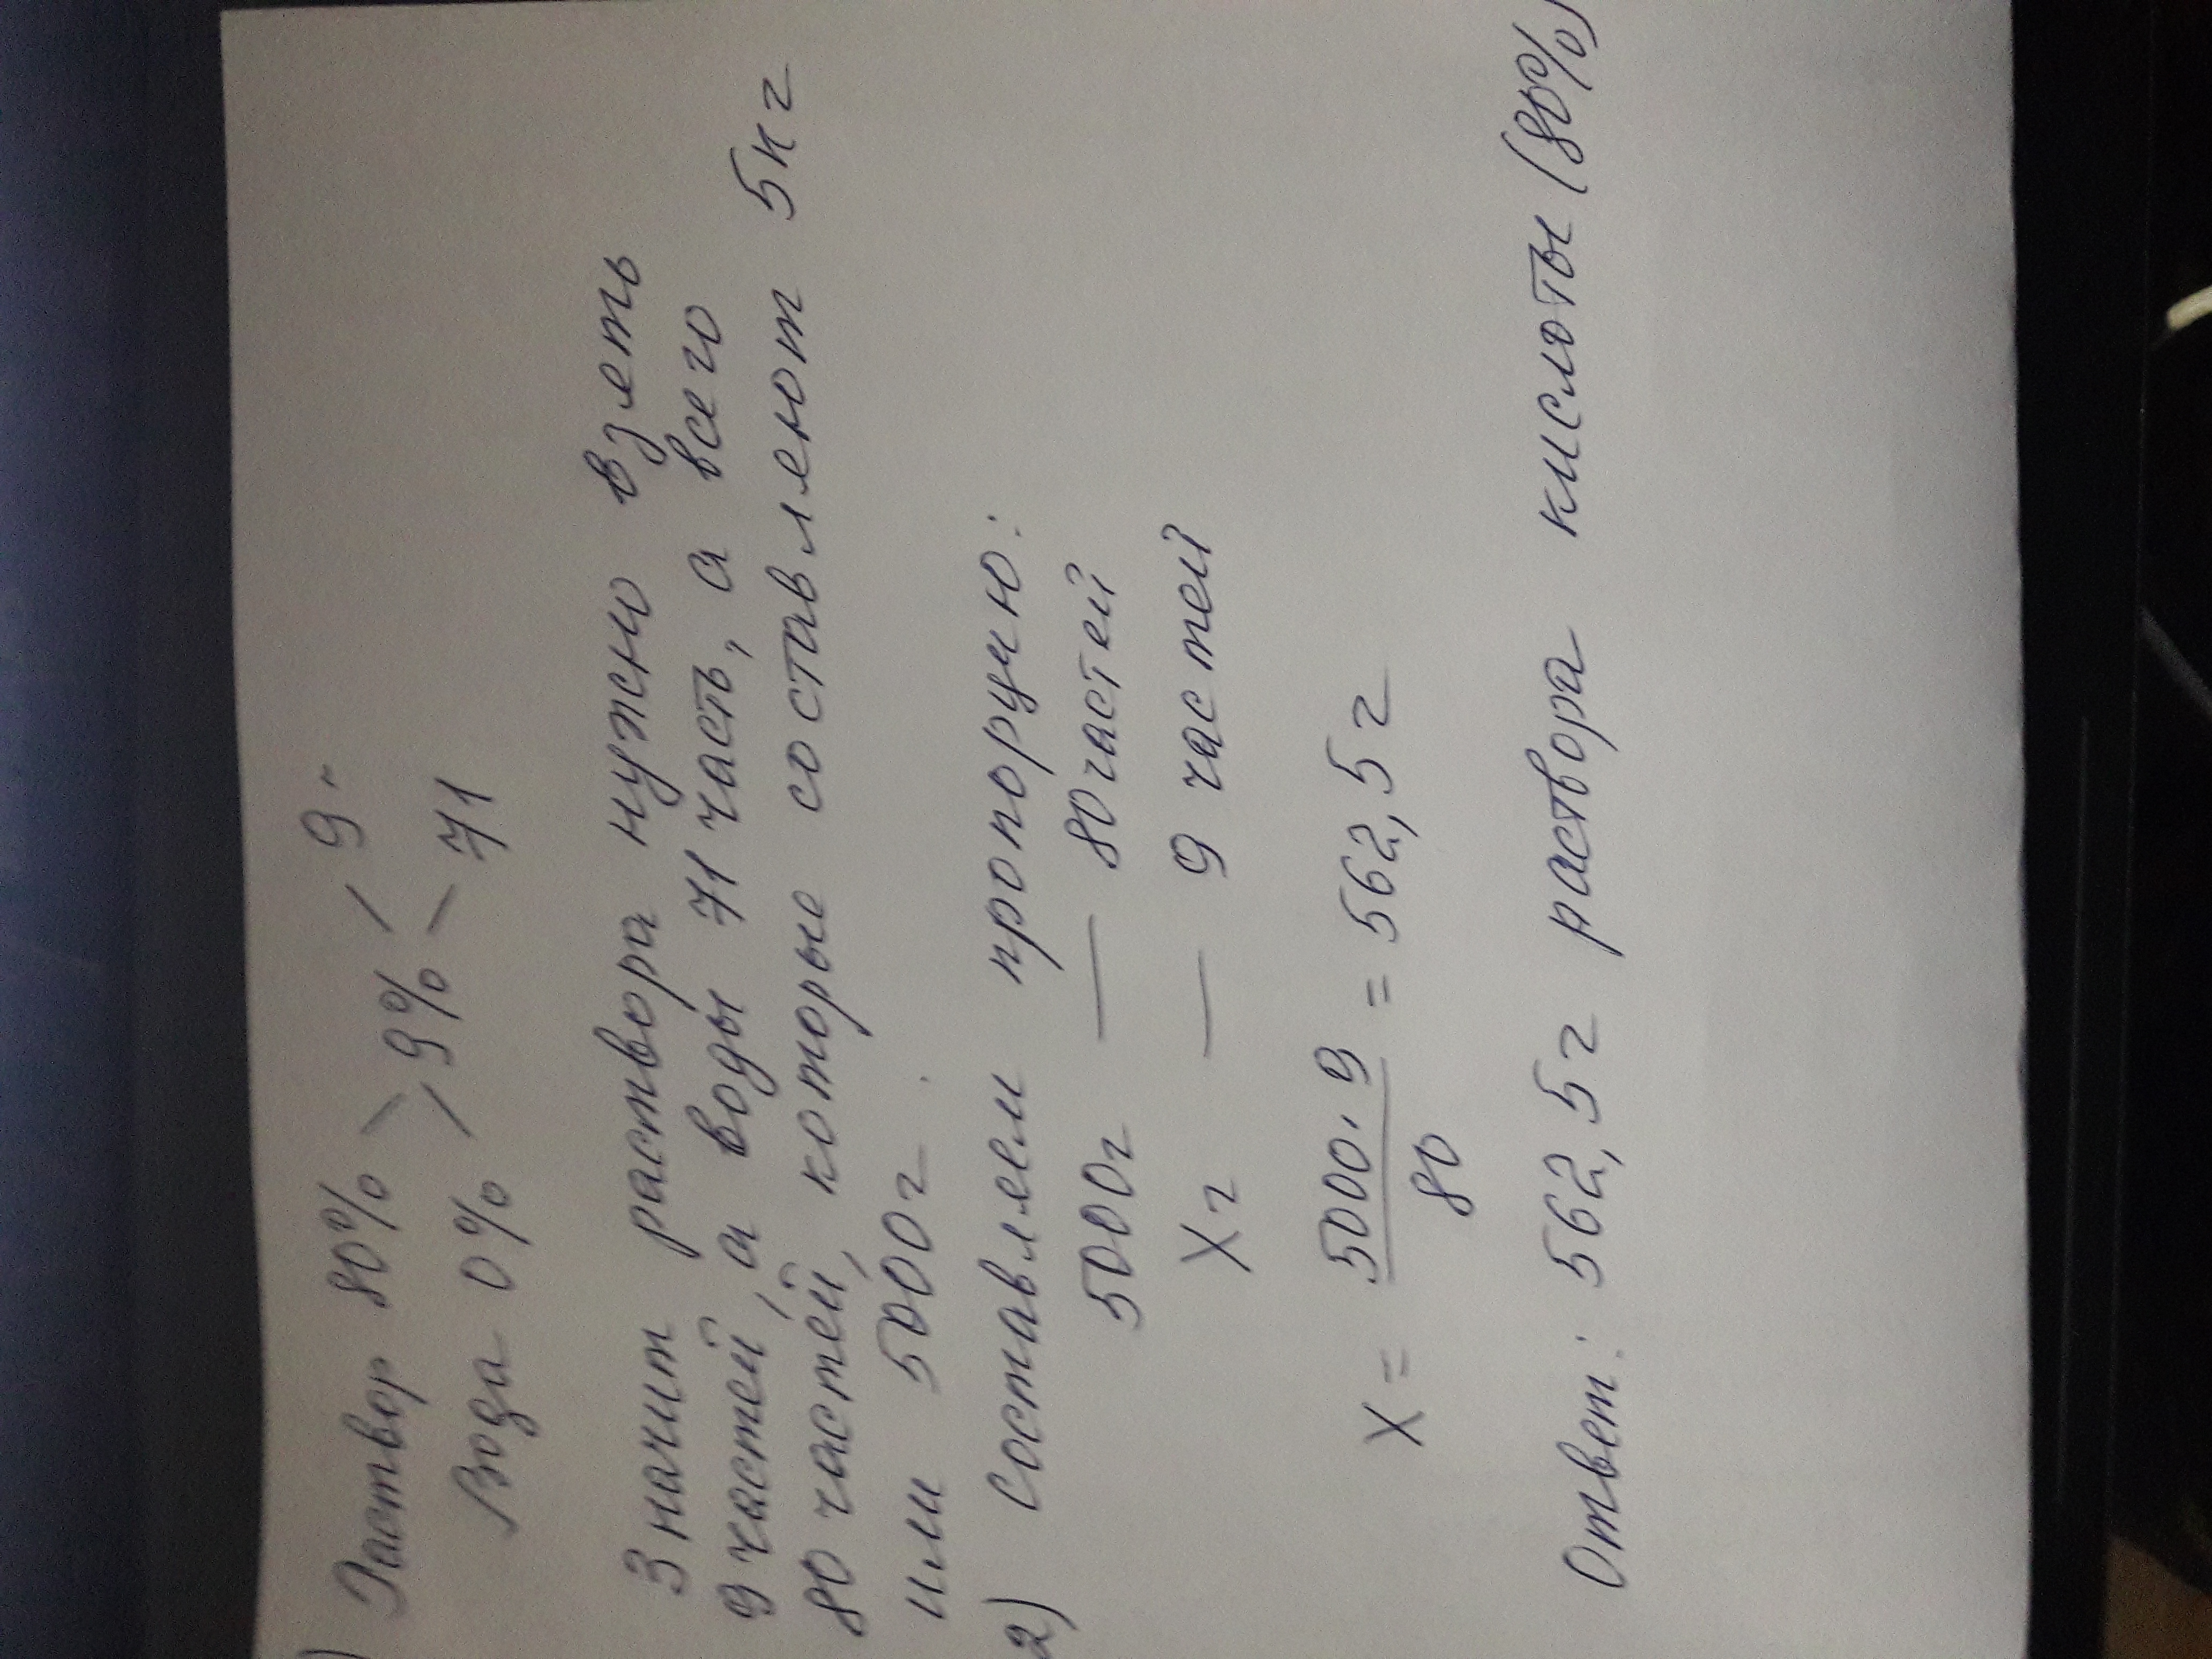 ) Раствор 80% \ / 9
> 9%
Вода 0% / \ 71
Значит раствора нужно взять
9 частей, а воды 71 часть, а всего
80 частей, которые составляют 5кг
или 5000г.
2) Составляем пропорцию:
5000г — 80 частей
Xг — 9 частей
X = 5000·9 / 80 = 562,5г
Ответ: 562,5г раствора кислоты (80%)